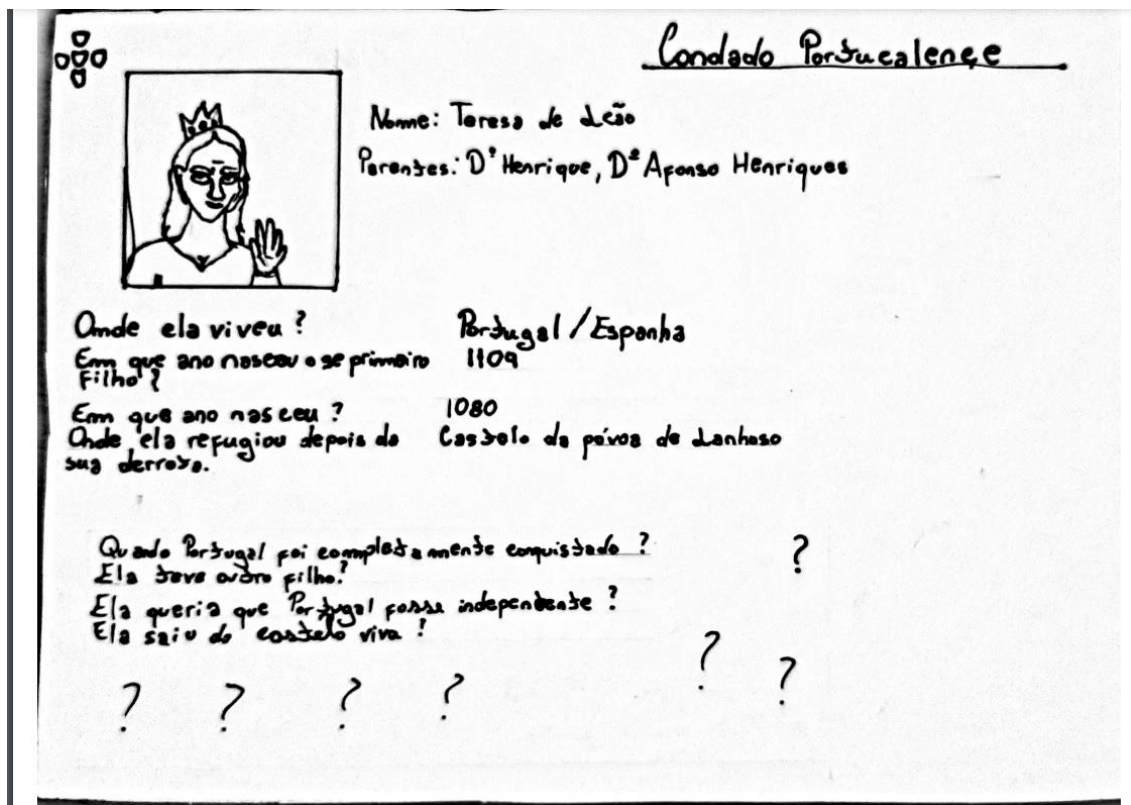 Condado Portucalençe
Nome: Teresa de Leão
Parentes: Dº Henrique, Dº Afonso Henriques
Onde ela viveu ? Portugal / Espanha
Em que ano nasceu o se primeiro 1109
Filho ?
Em que ano nasceu ? 1080
Onde ela refugiou depois da Castelo da póvoa de Lanhoso
sua derrota.
Quando Portugal foi completamente conquistado ? ?
Ela teve outro filho?
Ela queria que Portugal fosse independente ?
Ela saiu do castelo viva ?
? ?
? ? ? ?